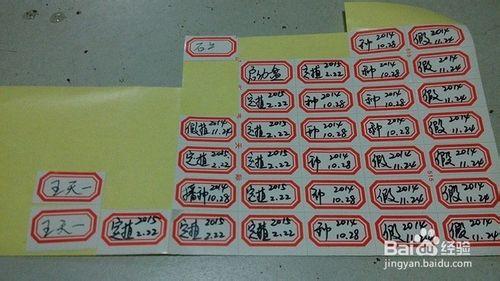 种 2014 10.28 假 2014 11.24
定植 2015 2.22 种 2014 10.28 假 2014 11.24
定植 2015 2.22 种 2014 10.28 种 2014 10.28 假 2014 11.24
假植 2014 11.24 定植 2015 2.22 种 2014 10.28 种 2014 10.28 假 2014 11.24
定植 2015 2.22 定植 2015 2.22 种 2014 10.28 假 2014 11.24 假 2014 11.24
王天一 播种 2014 10.28 定植 2015 2.22 种 2014 10.28 假 2014 11.24 假 2014 11.24
王天一 定植 2015 2.22 定植 2015 2.22 定植 2015 2.22 种 2014 10.28 假 2014 11.24 假 2014 11.24
515
Baidu 经验
jingyan.baidu.com